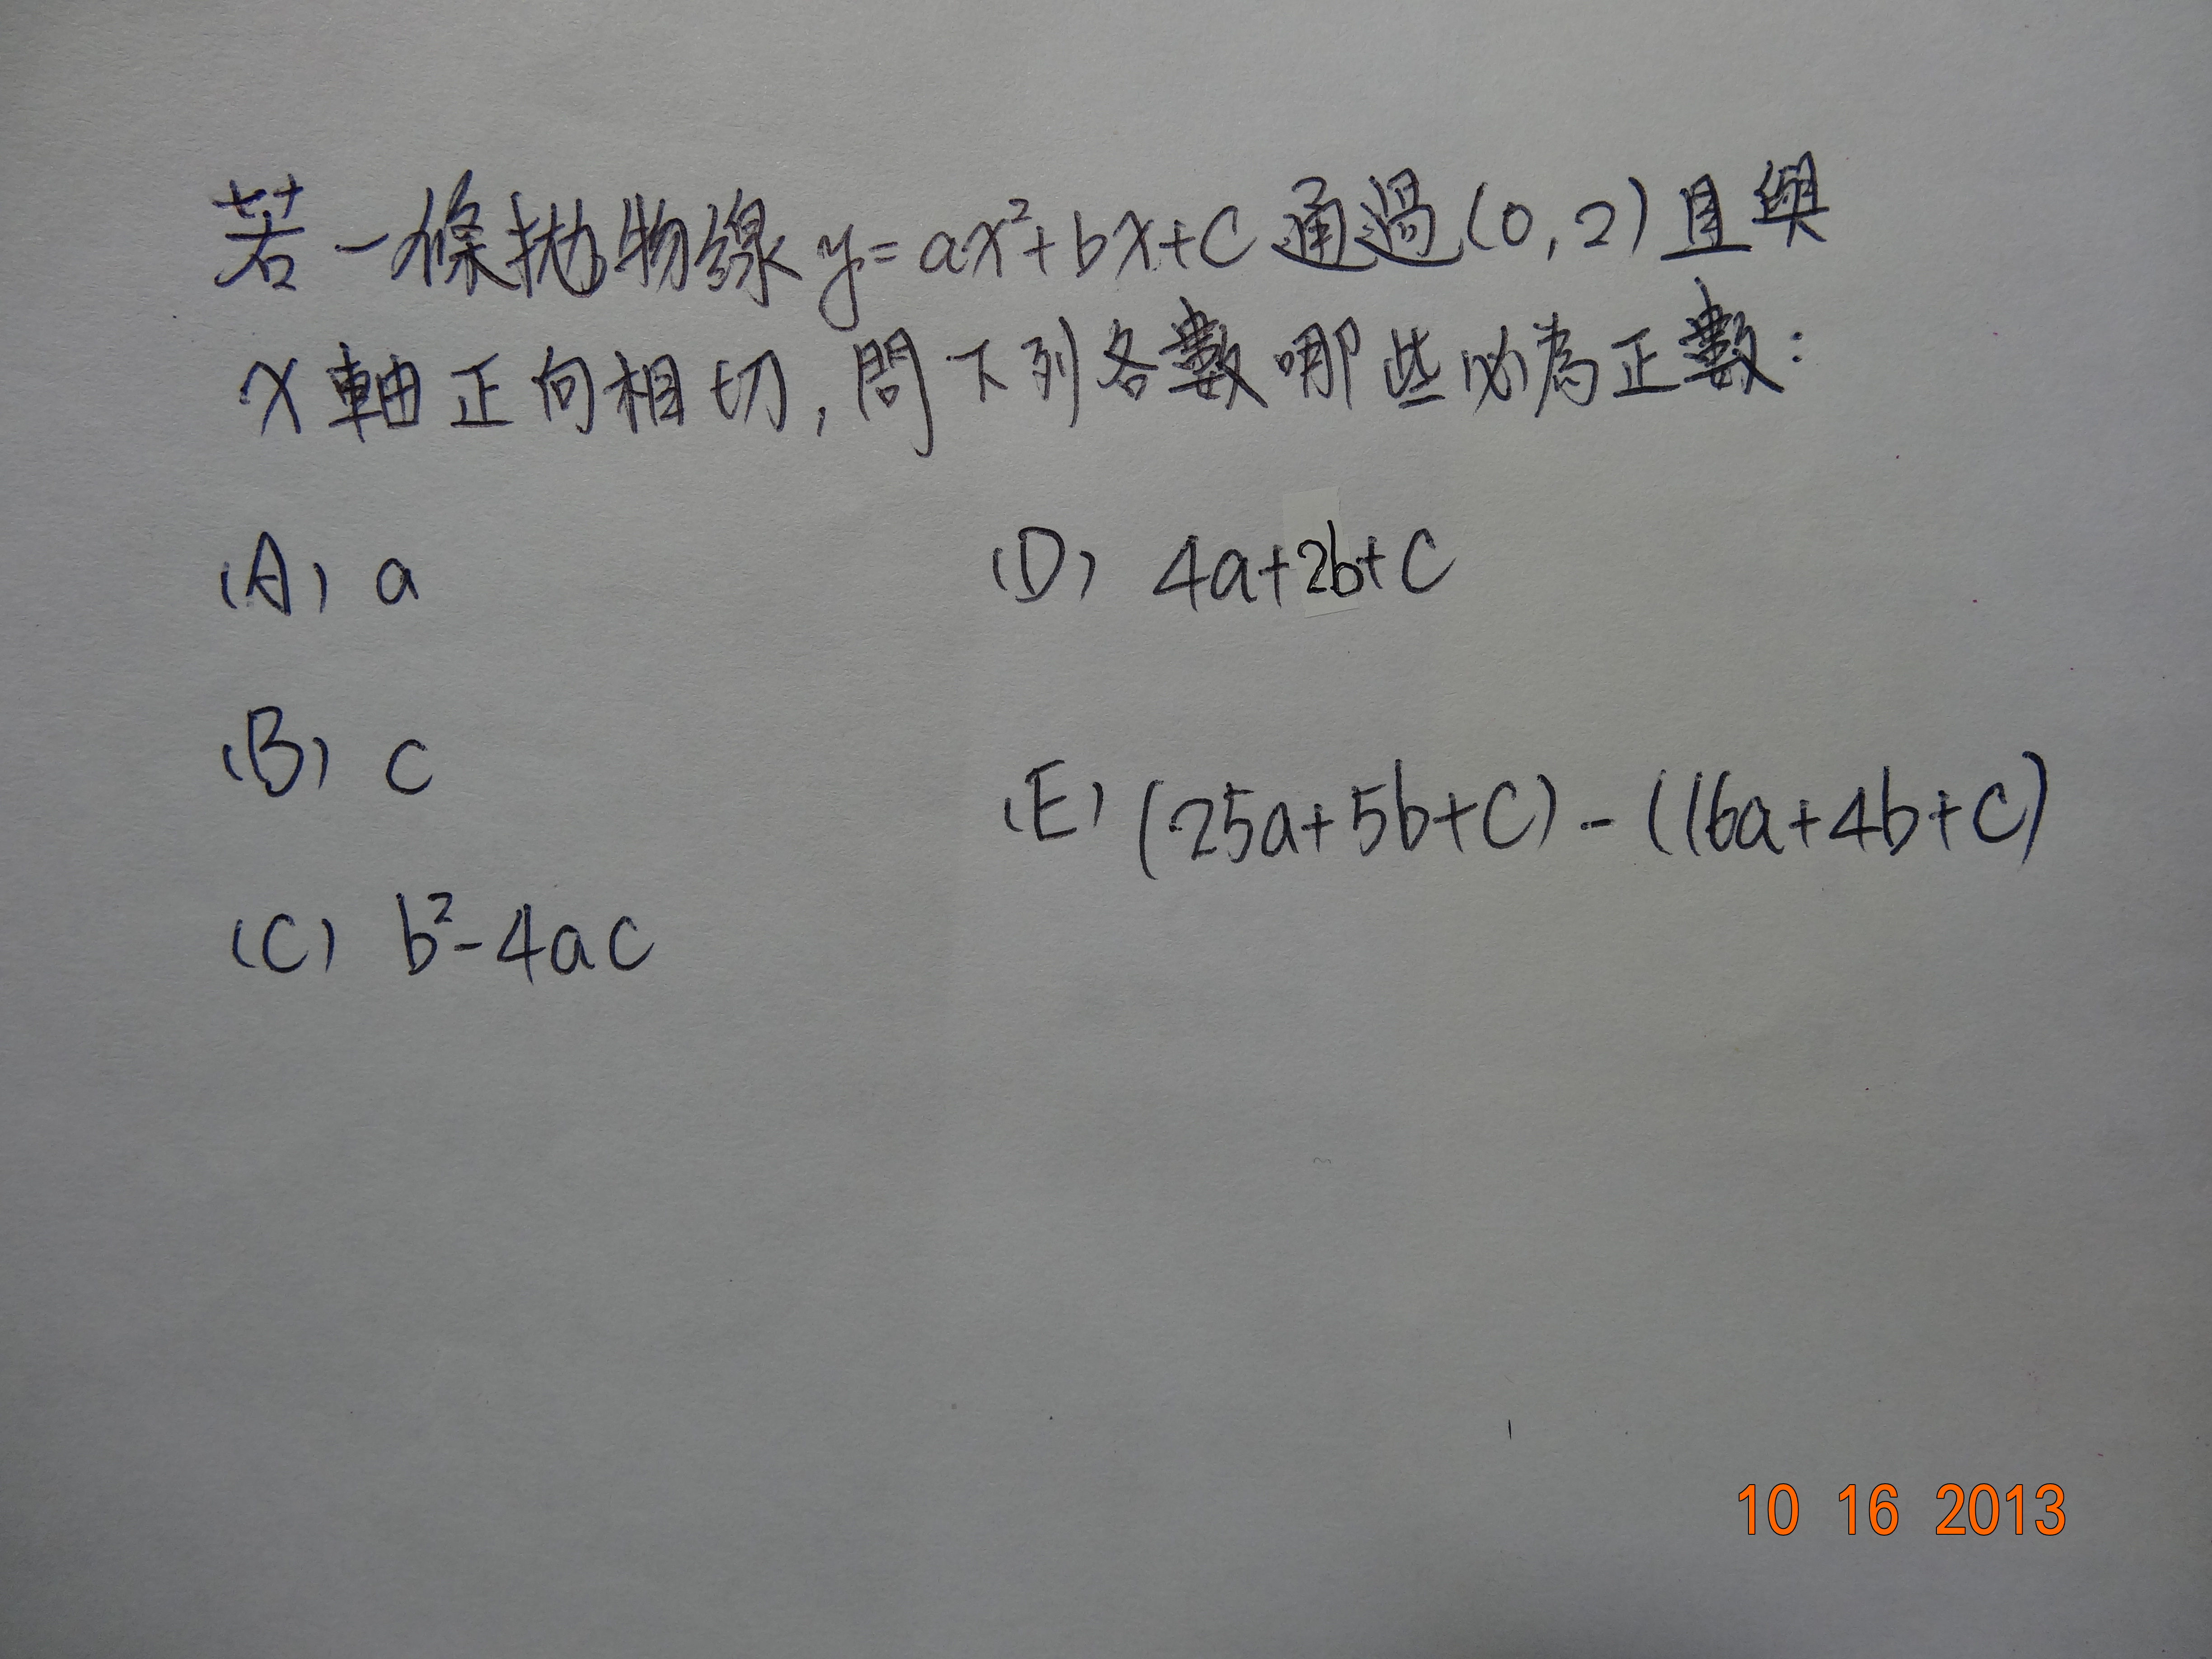 若一條拋物線 y=ax²+bx+c 通過(0,2)且與
x軸正向相切,問下列各數哪些必為正數:
(A) a
(B) c
(C) b²-4ac
(D) 4a+2b+c
(E) (25a+5b+c)-(16a+4b+c)
10 16 2013